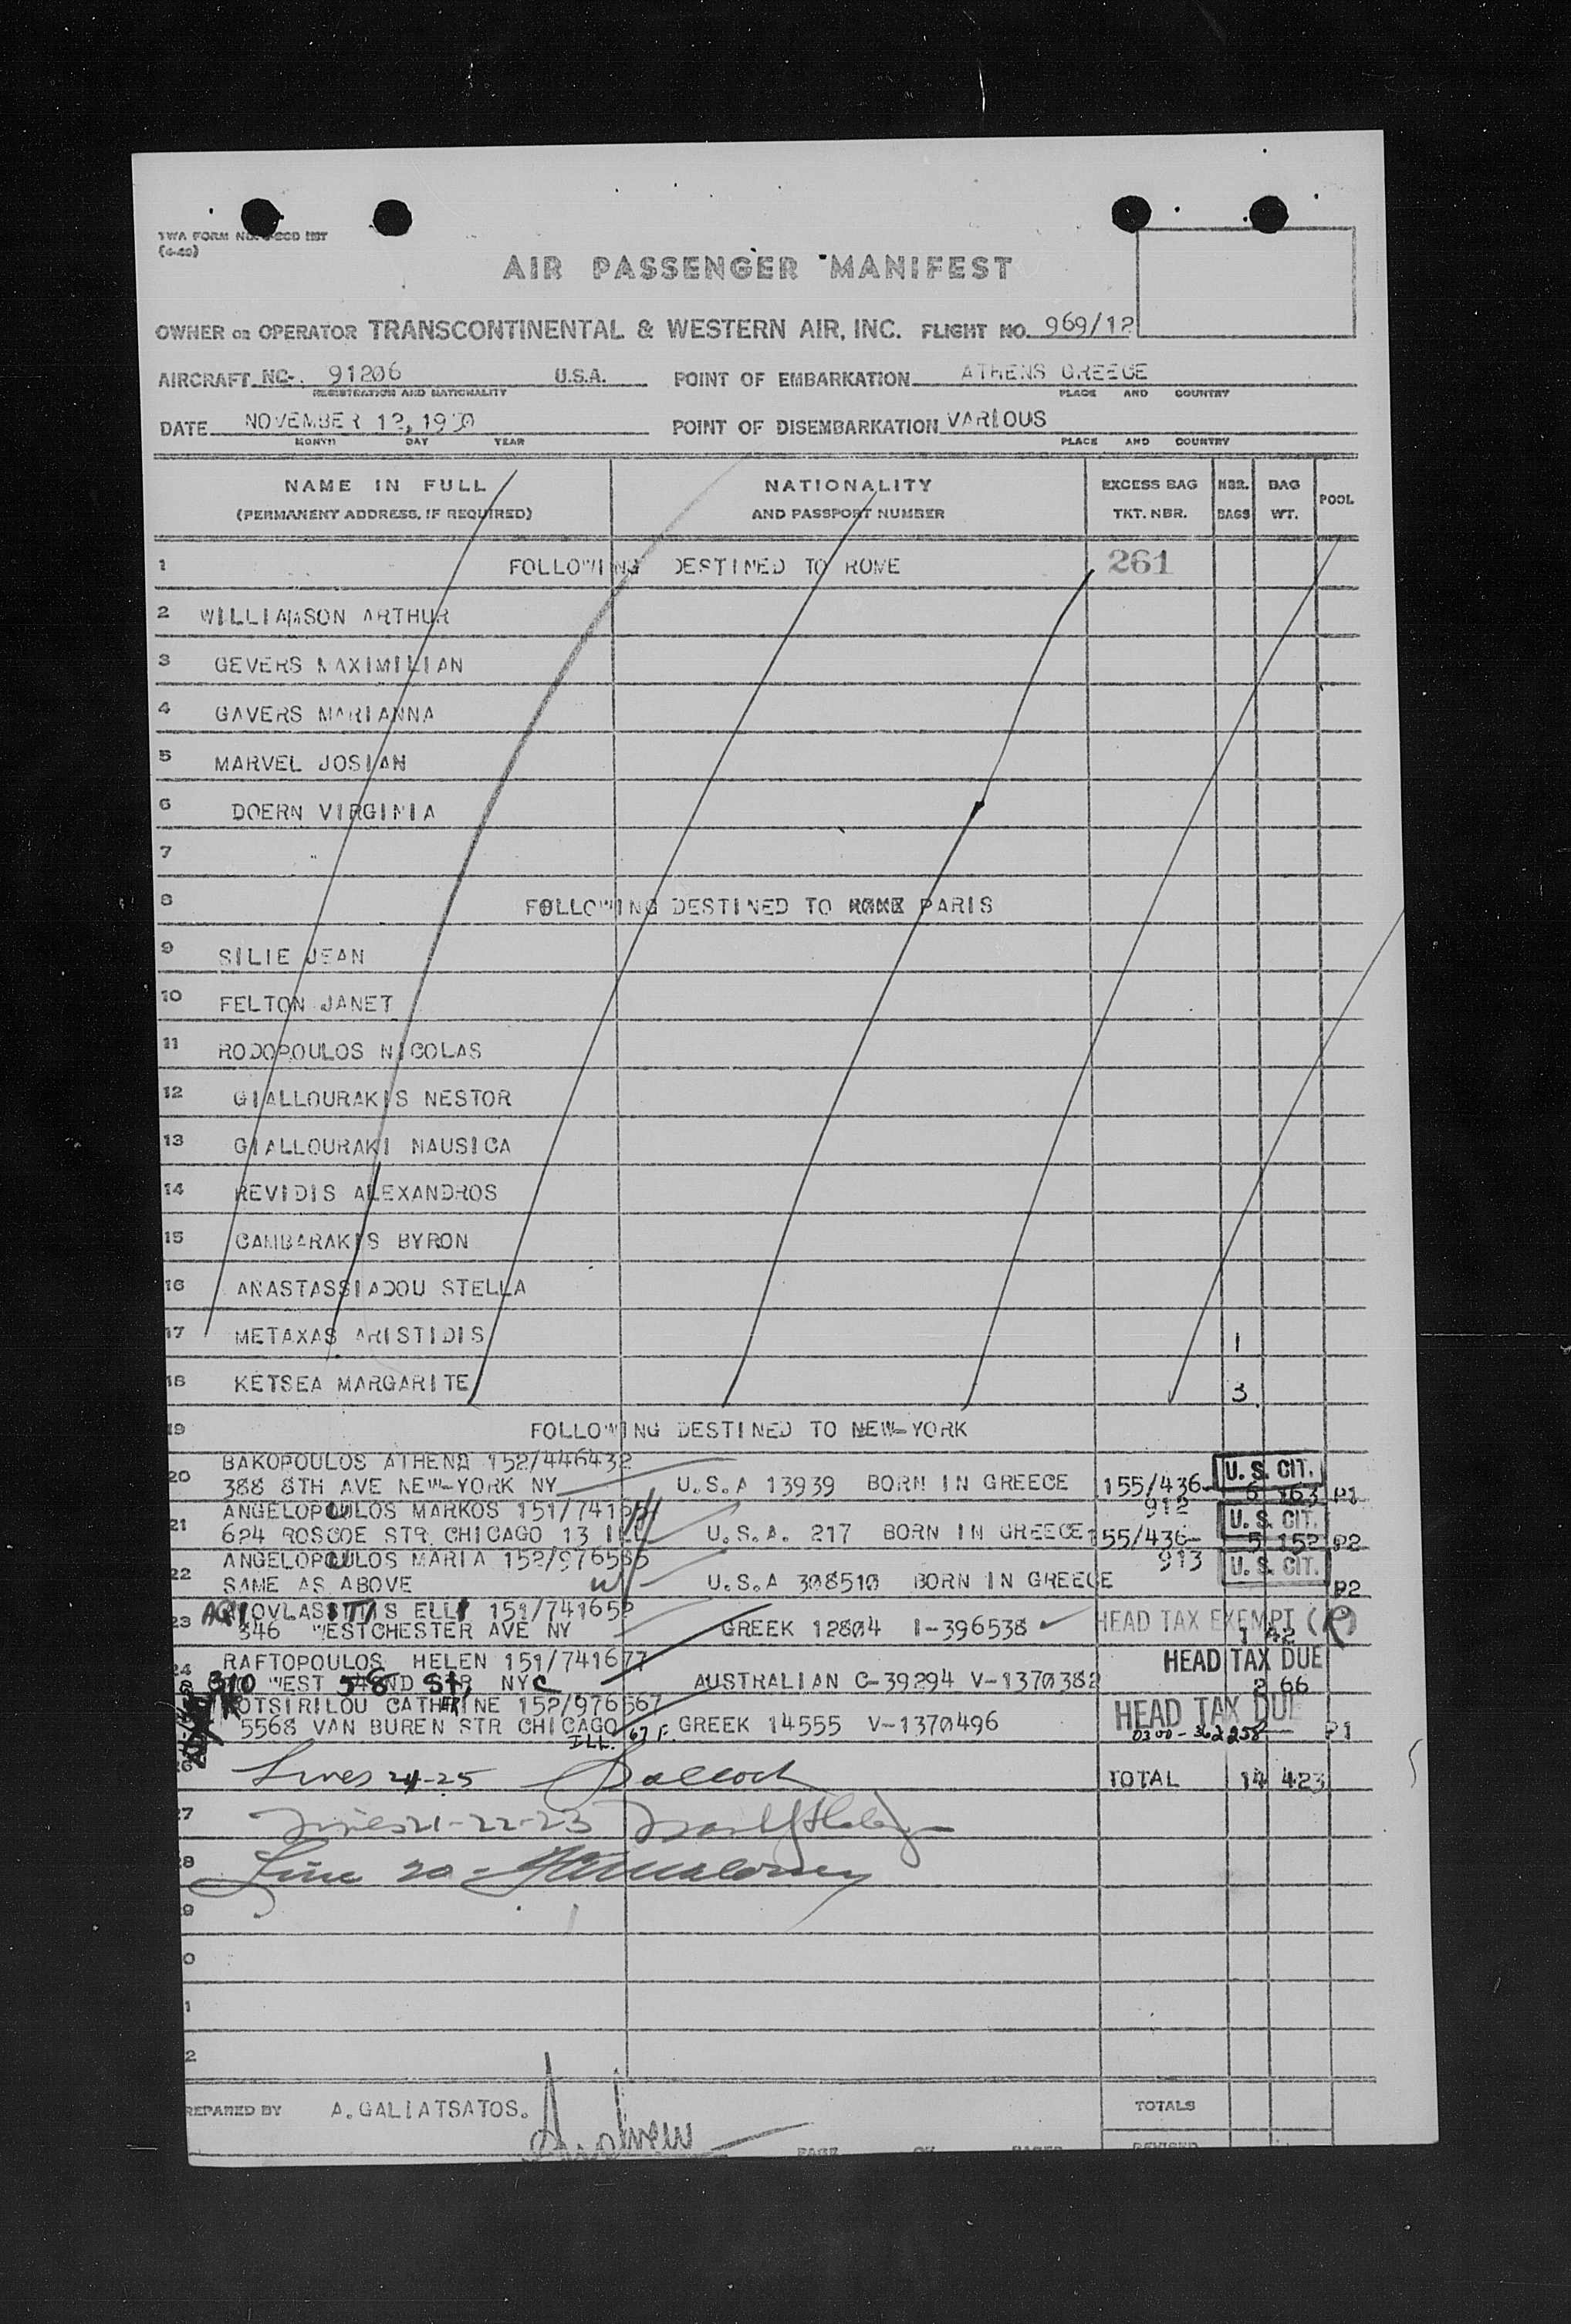 TWA FORM NO.
(4-49)
AIR PASSENGER MANIFEST
OWNER OR OPERATOR TRANSCONTINENTAL & WESTERN AIR, INC. FLIGHT NO. 969/12
AIRCRAFT NC-. 91206 U.S.A. POINT OF EMBARKATION ATHENS GREECE
REGISTRATION AND NATIONALITY PLACE AND COUNTRY
DATE NOVEMBER 12, 1950 POINT OF DISEMBARKATION VARIOUS
MONTH DAY YEAR PLACE AND COUNTRY
NAME IN FULL NATIONALITY EXCESS BAG NBR. BAG POOL
(PERMANENT ADDRESS, IF REQUIRED) AND PASSPORT NUMBER TKT. NBR. BAGS WT.
1 FOLLOWING DESTINED TO ROME 261
2 WILLIAMSON ARTHUR
3 GEVERS MAXIMILIAN
4 GAVERS MARIANNA
5 MARVEL JOSIAN
6 DOERN VIRGINIA
7
8 FOLLOWING DESTINED TO PARIS
9 SILIE JEAN
10 FELTON JANET
11 RODOPOULOS NICOLAS
12 GIALLOURAKIS NESTOR
13 GIALLOURAKI NAUSICA
14 REVIDIS ALEXANDROS
15 CAMBARAKIS BYRON
16 ANASTASSIADOU STELLA
17 METAXAS ARISTIDIS 1
18 KETSEA MARGARITE 3
19 FOLLOWING DESTINED TO NEW-YORK
BAKOPOULOS ATHENA 152/446432
20 388 8TH AVE NEW-YORK NY U.S.A 13939 BORN IN GREECE 155/436- U.S. CIT. 6 163 P1
ANGELOPOULOS MARKOS 151/741651 912
21 624 ROSCOE STR CHICAGO 13 ILL U.S.A. 217 BORN IN GREECE 155/436- U.S. CIT. 5 152 P2
ANGELOPOULOS MARIA 152/976565 913
22 SAME AS ABOVE U.S.A 308510 BORN IN GREECE U.S. CIT. P2
ELLI 151/741652
23 346 WESTCHESTER AVE NY GREEK 12804 I-396538 HEAD TAX EXEMPT 1 42
RAFTOPOULOS HELEN 151/741677 HEAD TAX DUE
24 310 WEST 58 STR NYC AUSTRALIAN C-39294 V-1370382 2 66
KOTSIRILOU CATHERINE 152/976567 HEAD TAX DUE
5568 VAN BUREN STR CHICAGO ILL. 67 F. GREEK 14555 V-1370496 P1
26 Lines 24-25 TOTAL 14 423
27 Lines 21-22-23
28 Line 20 -
9
0
1
2
PREPARED BY A. GALIATSATOS. TOTALS
PAGE OF PAGES REVISED